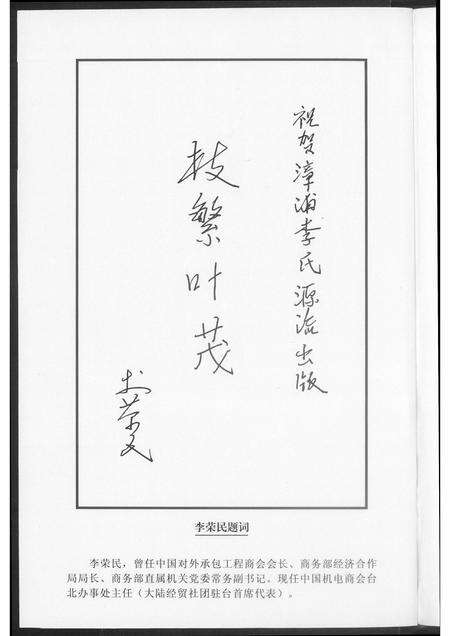 祝贺漳浦李氏源流出版
枝繁叶茂
李荣民
李荣民题词
李荣民，曾任中国对外承包工程商会会长、商务部经济合作
局局长、商务部直属机关党委常务副书记。现任中国机电商会台
北办事处主任（大陆经贸社团驻台首席代表）。